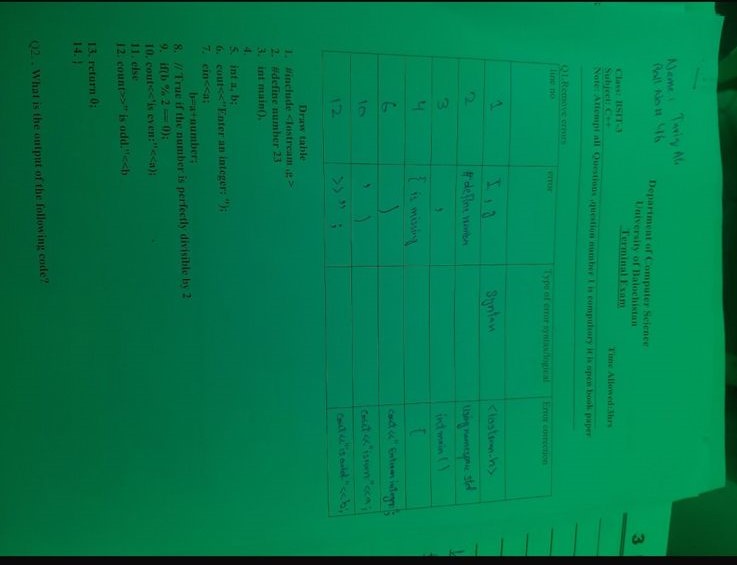 3
Name: Tariq Ali
Roll No# 46
Department of Computer Science
University of Balochistan
Terminal Exam
Class: BSIT-3 Time Allowed:3hrs
Subject: C++
Note: Attempt all Questions ,question number 1 is compulsory it is open book paper
Q1.Remove errors
line no error Type of error syntax/logical Error correction
1 I , g Syntax <iostream.h>
2 #define number using namespace std
3 , int main()
4 { is missing {
6 ) cout <<"Enter an integer";
10 , ) cout <<"is even"<<a;
12 >> " ; cout <<"is odd"<<b;
Draw table
1. #include <Iostream ,g >
2. #define number 23
3. int main().
4.
5. int a, b;
6. cout<<"Enter an integer: ");
7. cin<<a;
b=a+number;
8. //True if the number is perfectly divisible by 2
9. if(b % 2 == 0);
10. cout<<"is even:"<<a);
11. else
12. count>>" is odd:"<<b
13. return 0;
14. }
Q2. . What is the output of the following code?